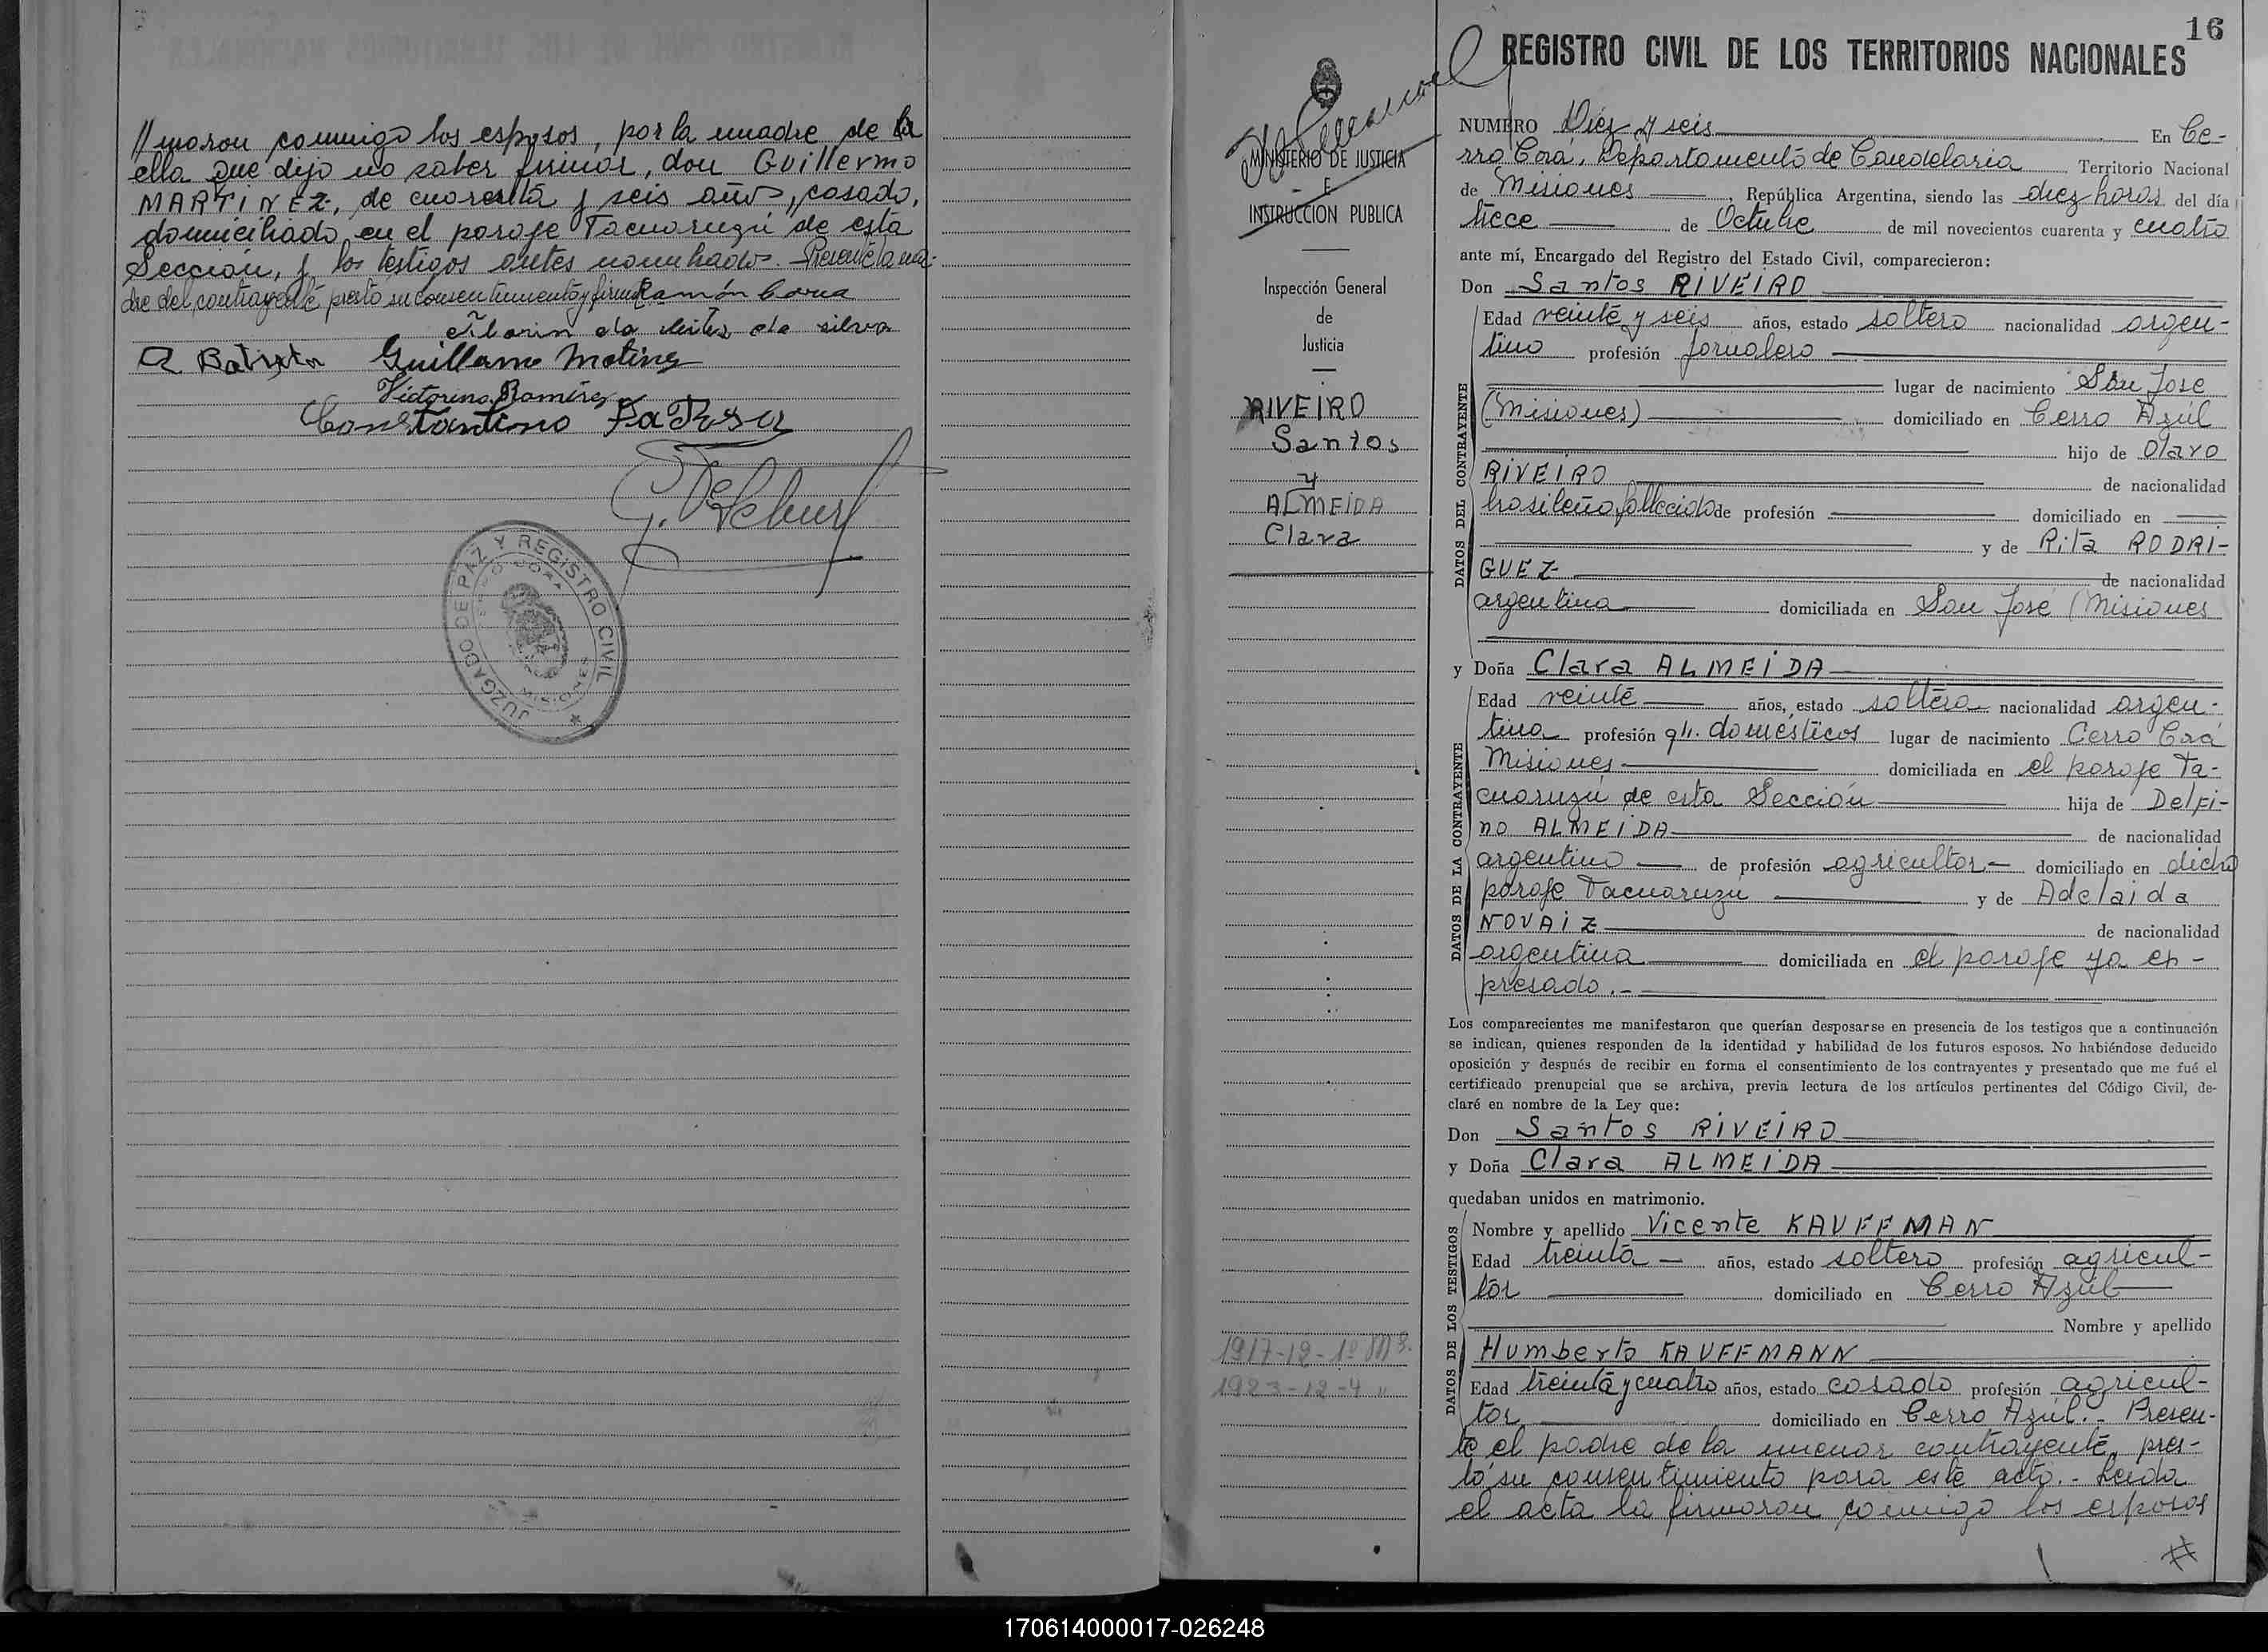 //maron conmigo los esposos, por la madre de la
ella que dijo no saber firmar, don Guillermo
MARTINEZ, de cuarenta y seis años, casado,
domiciliado en el paraje Tacuaruzú de esta
Sección, y los testigos antes nombrados. Presente la ma-
dre del contrayente prestó su consentimiento y firma Ramón
da silva
Batista Guillermo
Victorino Ramírez
Constantino Da Rosa
JUZGADO DE PAZ Y REGISTRO CIVIL
CERRO CORA
MISIONES
16
REGISTRO CIVIL DE LOS TERRITORIOS NACIONALES
MINISTERIO DE JUSTICIA
E
INSTRUCCION PUBLICA
Inspección General
de
Justicia
RIVEIRO
Santos
y
ALMEIDA
Clara
1917-12-1º
1923-12-4 "
NUMERO Diez y seis En Ce-
rro Corá, Departamento de Candelaria Territorio Nacional
de Misiones, República Argentina, siendo las diez horas del día
trece de Octubre de mil novecientos cuarenta y cuatro
ante mí, Encargado del Registro del Estado Civil, comparecieron:
Don Santos RIVEIRO
DATOS DEL CONTRAYENTE
Edad veinte y seis años, estado soltero nacionalidad argen-
tino profesión jornalero
lugar de nacimiento San José
(Misiones) domiciliado en Cerro Azúl
hijo de Olavo
RIVEIRO de nacionalidad
brasileño, fallecido de profesión domiciliado en
y de Rita RODRI-
GUEZ de nacionalidad
argentina domiciliada en San José (Misiones
y Doña Clara ALMEIDA
DATOS DE LA CONTRAYENTE
Edad veinte años, estado soltera nacionalidad argen-
tina profesión qh. domésticos lugar de nacimiento Cerro Corá
Misiones domiciliada en el paraje Ta-
cuaruzú de esta Sección hija de Delfi-
no ALMEIDA de nacionalidad
argentino de profesión agricultor.- domiciliado en dicho
paraje Tacuaruzú y de Adelaida
NOVAIZ de nacionalidad
argentina domiciliada en el paraje ya ex-
presado.-
Los comparecientes me manifestaron que querían desposarse en presencia de los testigos que a continuación
se indican, quienes responden de la identidad y habilidad de los futuros esposos. No habiéndose deducido
oposición y después de recibir en forma el consentimiento de los contrayentes y presentado que me fué el
certificado prenupcial que se archiva, previa lectura de los artículos pertinentes del Código Civil, de-
claré en nombre de la Ley que:
Don Santos RIVEIRO
y Doña Clara ALMEIDA
quedaban unidos en matrimonio.
DATOS DE LOS TESTIGOS
Nombre y apellido Vicente KAUFFMAN
Edad treinta años, estado soltero profesión agricul-
tor domiciliado en Cerro Azúl
Nombre y apellido
Humberto KAUFFMANN
Edad treinta y cuatro años, estado casado profesión agricul-
tor domiciliado en Cerro Azúl.- Presen-
te el padre de la menor contrayente, pres-
tó su consentimiento para este acto.- Leida
el acta la firmaron conmigo los esposos
#
170614000017-026248